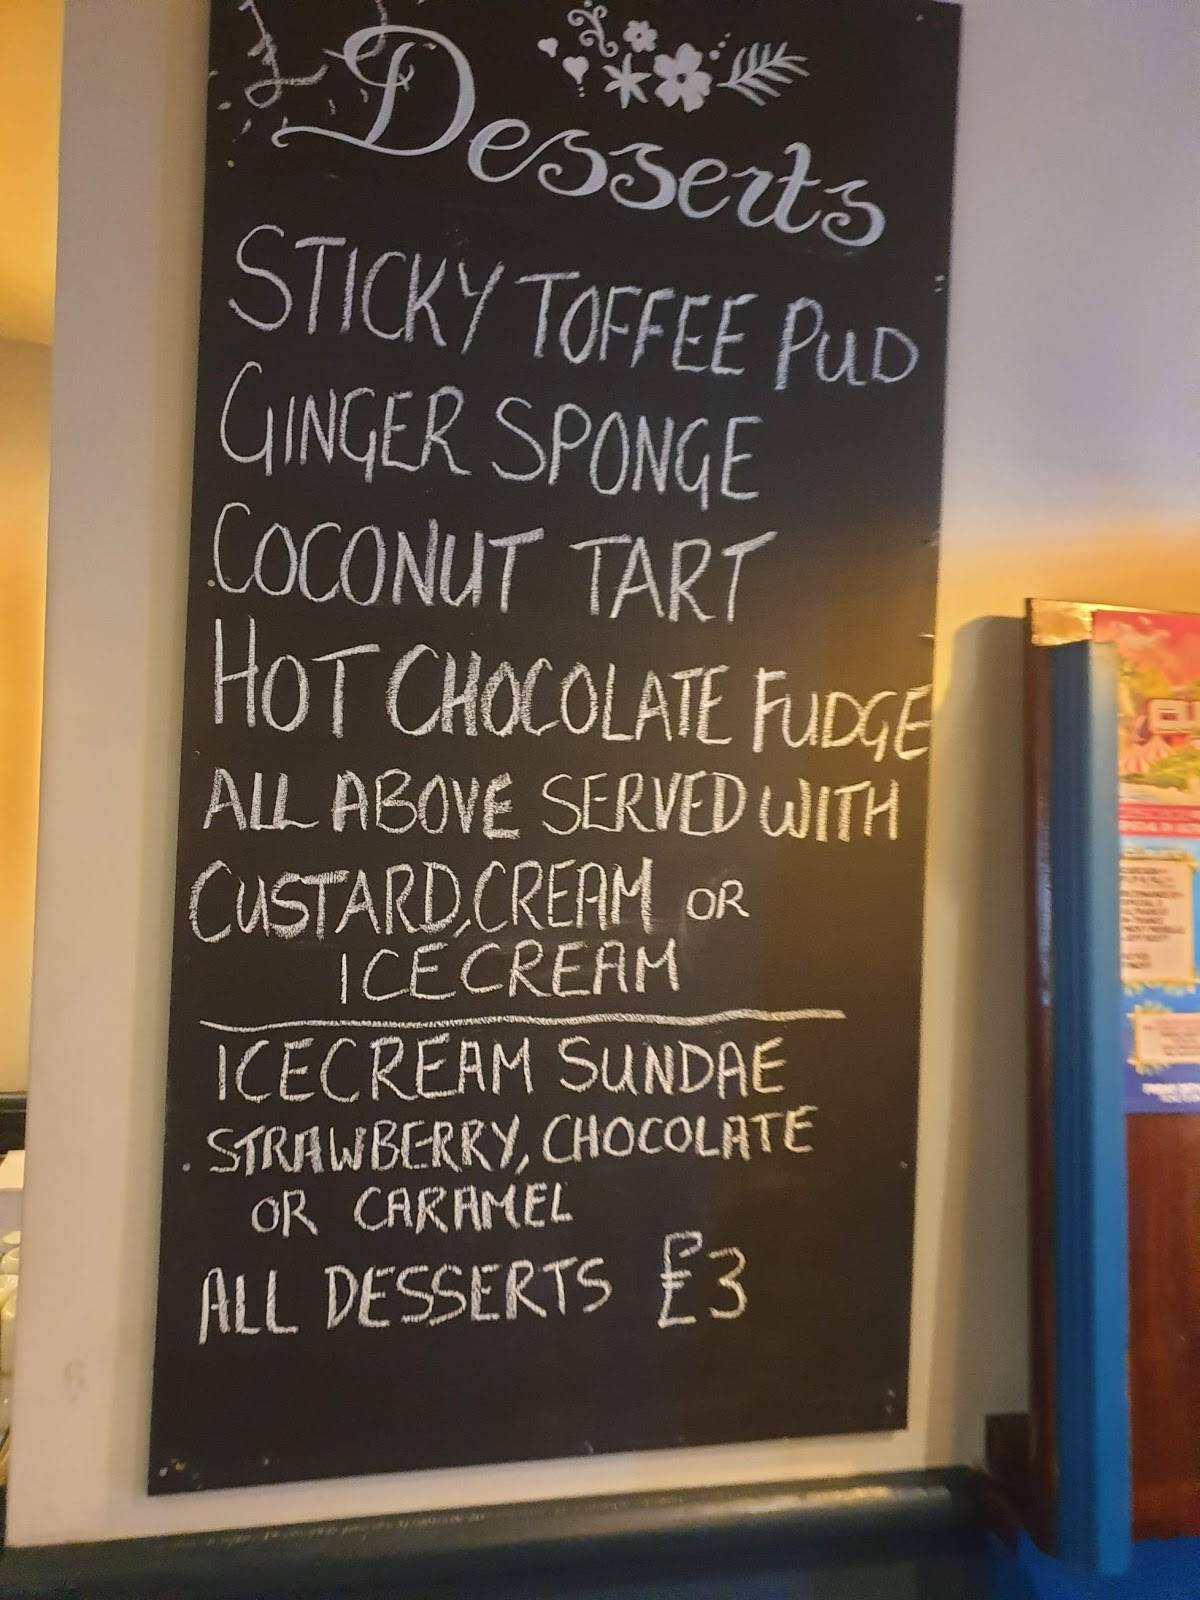 Desserts
STICKY TOFFEE PUD
GINGER SPONGE
COCONUT TART
HOT CHOCOLATE FUDGE
ALL ABOVE SERVED WITH
CUSTARD, CREAM OR
ICECREAM
ICECREAM SUNDAE
STRAWBERRY, CHOCOLATE
OR CARAMEL
ALL DESSERTS £3